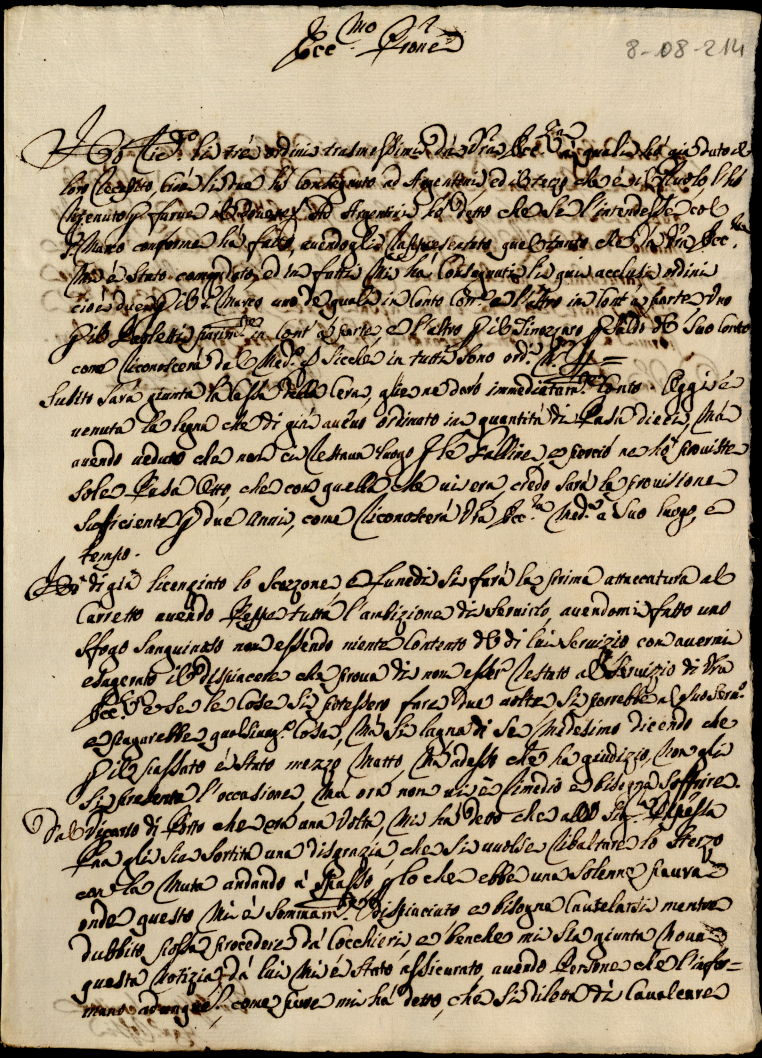 Ecc.mo P.rone
8-08-214
Hò ric.to li trè ordini trasmessimi dà V'ra Ecc.za à quali hò già dato il
loro ricapito, cioè li due hò consegnato ad Argentini, ed il terzo che è di l'hò
ritenuto p farne il Ad Argentini hò detto che se l'intendesse col
S.r Marco conforme hà fatto, avendogli rappresentato quel tanto che da V'ra Ecc.za
mi è stato comandato, ed in fatti mi hà consegnati li qui acclusi ordini
cioè due p il S.r Marco uno de quali in conto corr.e e l'altro in cont' à parte Uno
p il Paoletti in cont' à parte, e l'altro p il p saldo del suo conto
come riconoscerà del Med.o p Sicchè in tutti sono ord.i N.
Subito sarà giunta la Cassa della Cera, gliene darò immediatam.e conto. Oggi è
venuta la legna che di già avevo ordinato in quantità di Passa dieci, mà
avendo veduto che non ci restava luogo p le Galline, e perciò ne hò proviste
sole Passa Otto, che con quella che vi era, credo sarà la provisione
sufficiente p due anni, come riconoscerà V'ra Ecc.za Med.a a suo luogo, e
tempo.
Hò di già licenziato lo Scozzone e Lunedì si farà la prima attaccatura al
Carretto avendo tutta l'ambizione di servirlo, avendomi fatto uno
sfogo sanguinoso non essendo niente contento del di lui servizio con avermi
esagerato il dispiacere che prova di non esser restato al servizio di V'ra
Ecc.za e se le cose si potessero fare due volte si porrebbe al suo
e pagarebbe qualsivog.a cosa, mà si lagna di se medesimo dicendo che
p il passato è stato mezzo matto, mà adesso che hà giudizio, non gli
si presenta l'occasione, mà ora non vi è rimedio e bisogna soffrire.
Dal Vicario di Porto che era una volta, mi hà detto che allo Sig.ra
P'na gli sia sortita una disgrazia, che si volse ribaltare lo Sterzo
con la Muta andando à spasso, p lo che ebbe una solenne paura
onde questo mi è sommam.e dispiaciuto e bisogna cautelarsi mentre
dubbito possa procedere dà Cocchieri, e benche mi sia giunta nova
questa notizia dà lui mi è stato assicurato, avendo Persone che l'infor=
mano come pure mi hà detto, che si diletta di Cavalcare